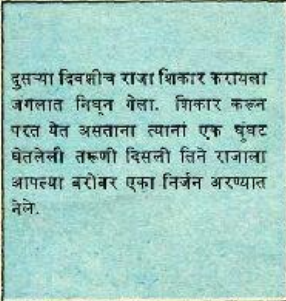 दुसऱ्या दिवशीच राजा शिकार करायला
जंगलात निघून गेला. शिकार करून
परत येत असताना त्यानां एक घुंघट
घेतलेली तरूणी दिसली तिने राजाला
आपल्या बरोबर एका निर्जन अरण्यात
नेले.